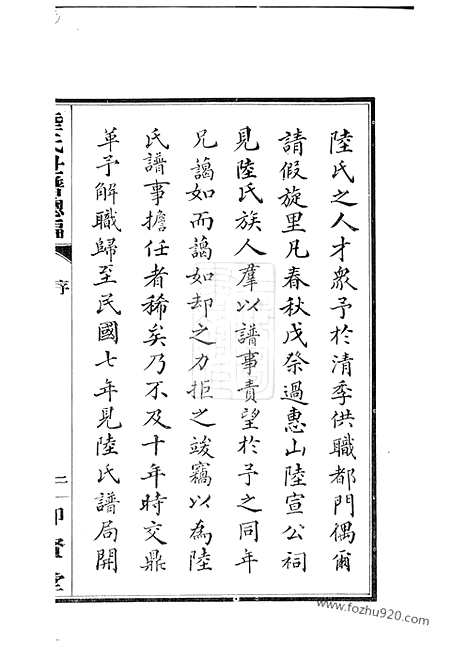 陸氏之人才衆予於清季供職都門偶爾
請假旋里凡春秋戊祭過惠山陸宣公祠
見陸氏族人羣以譜事責望於予之同年
兄藹如而藹如却之力拒之竣竊以為陸
氏譜事擔任者稀矣乃不及十年時交鼎
革予解職歸至民國七年見陸氏譜局開
陸氏世譜總編
序
二
www.fozhu920.com